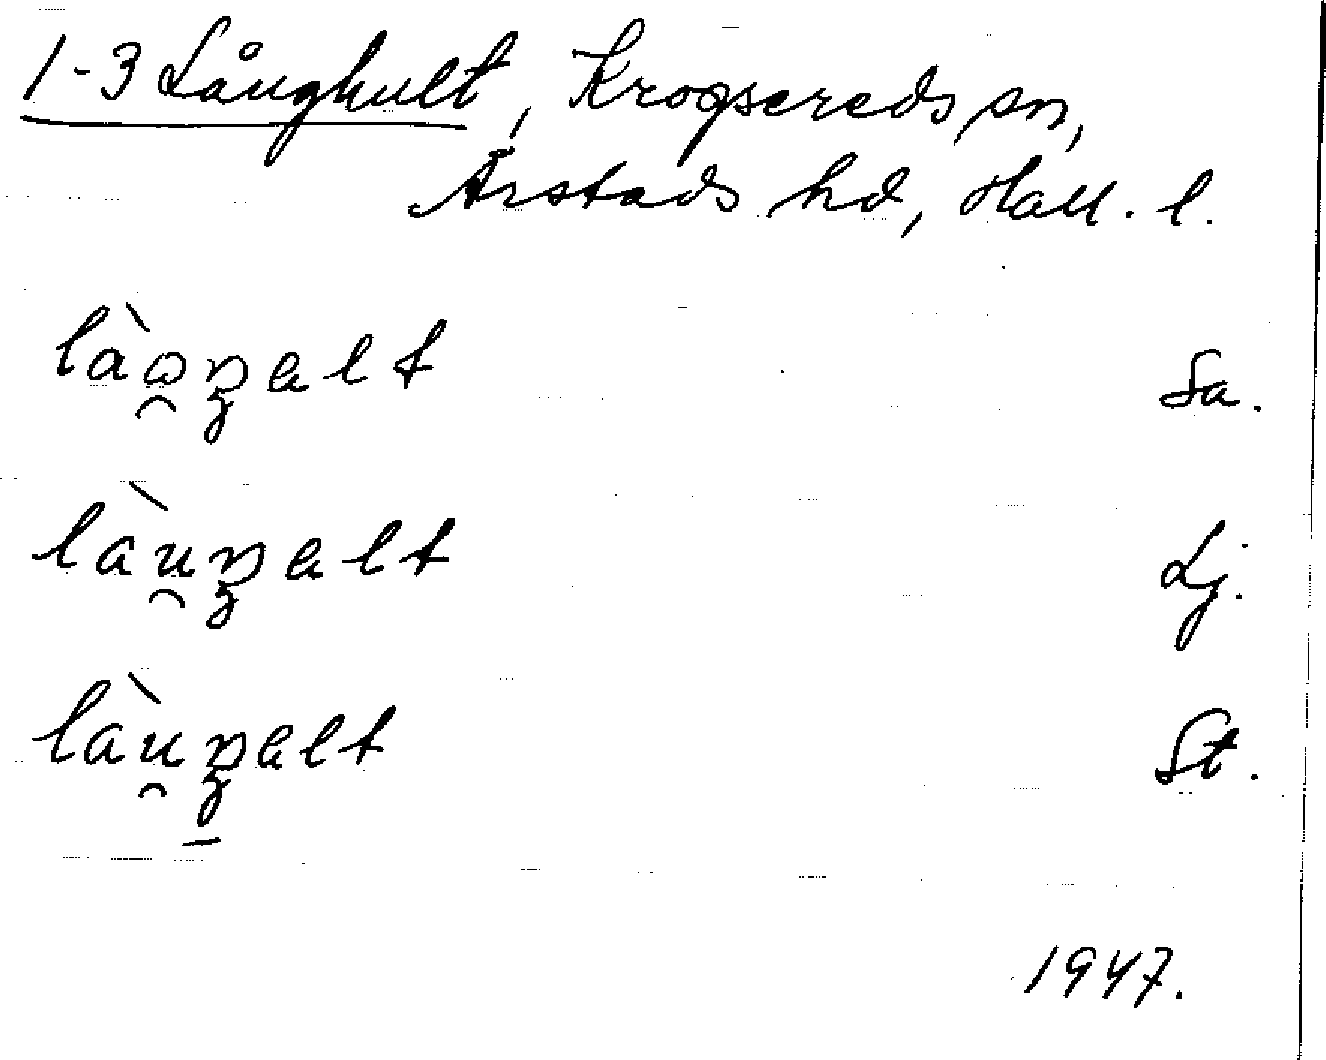 1-3 Långhult, Krogsereds sn,
Årstads hd, Hall. l.
lào̯ŋalt Sa.
làu̯ŋalt Lj.
làu̯ŋalt St.
1947.